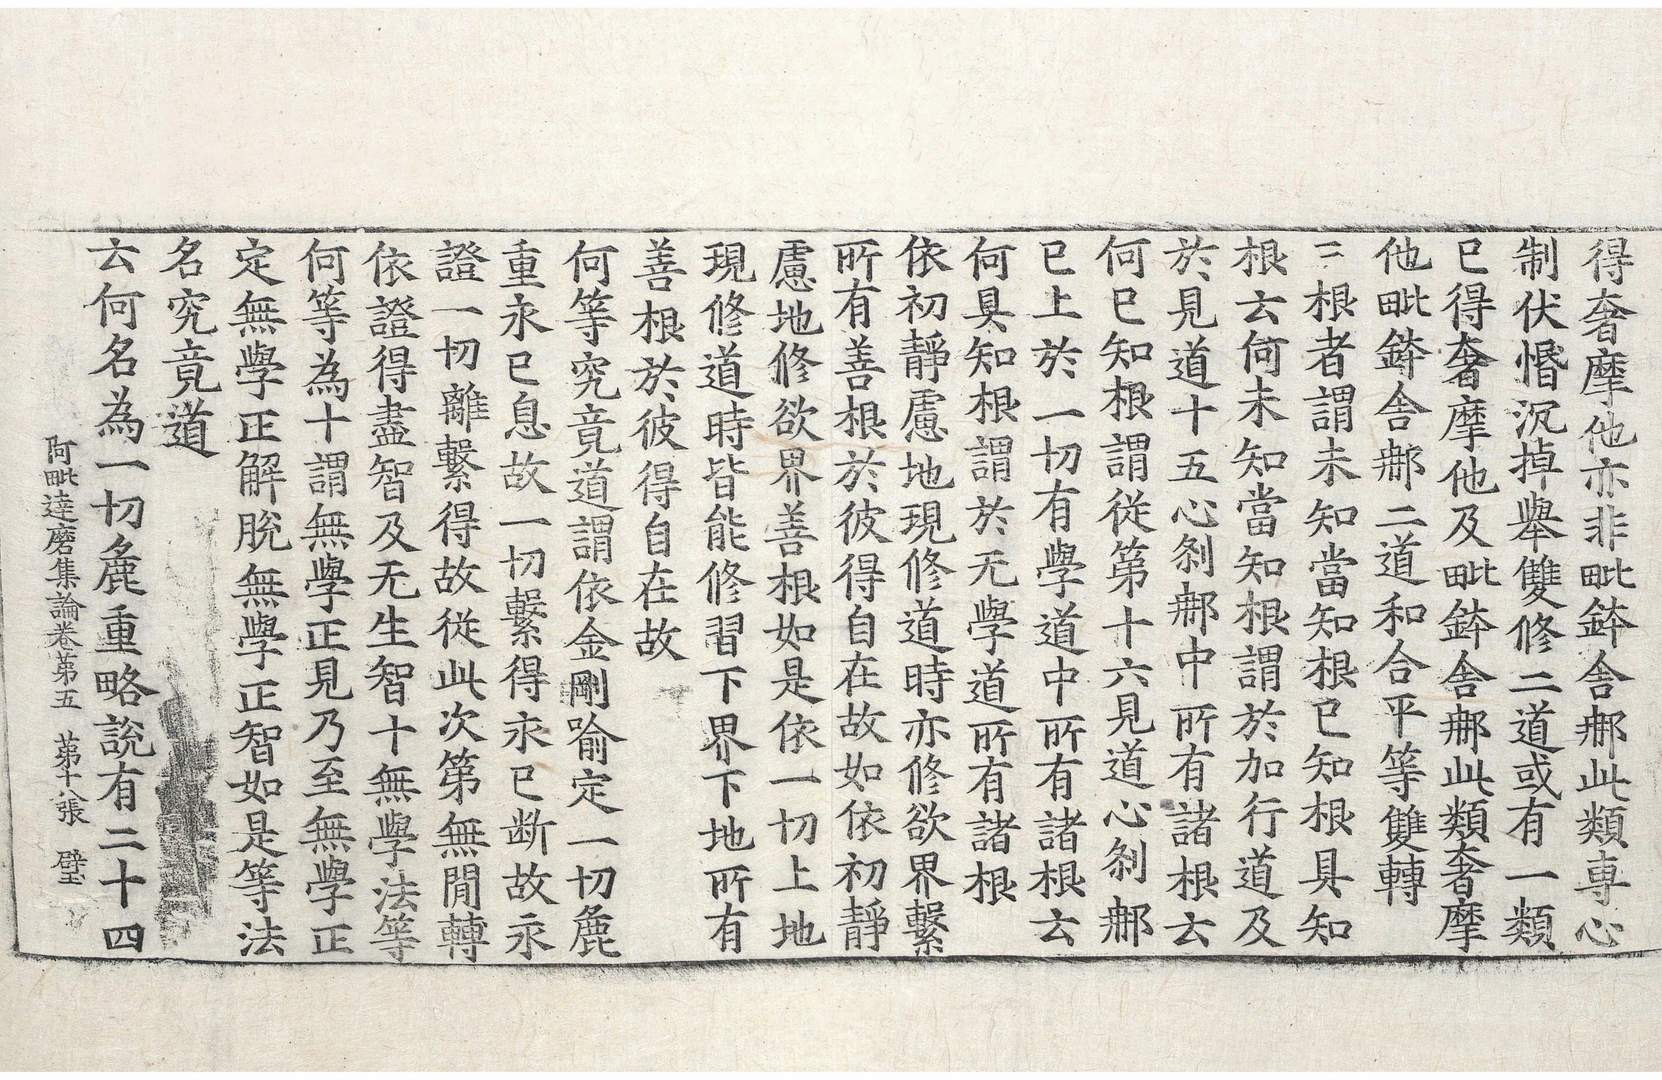 得奢摩他亦非毗鉢舍那此類専心
制伏惛沉掉舉雙修二道或有一類
已得奢摩他及毗鉢舍那此類奢摩
他毗鉢舍那二道和合平等雙轉
三根者謂未知當知根已知根具知
根云何未知當知根謂於加行道及
於見道十五心剎那中所有諸根云
何已知根謂從第十六見道心剎那
已上於一切有學道中所有諸根云
何具知根謂於无學道所有諸根
依初靜慮地現修道時亦修欲界繫
所有善根於彼得自在故如依初靜
慮地修欲界善根如是依一切上地
現修道時皆能修習下界下地所有
善根於彼得自在故
何等究竟道謂依金剛喻定一切麁
重永已息故一切繫得永已断故永
證一切離繫得故從此次第無閒轉
依證得盡智及无生智十無學法等
何等為十謂無學正見乃至無學正
定無學正解脫無學正智如是等法
名究竟道
云何名為一切麁重略說有二十四
阿毗達磨集論卷第五 第十八張 璧